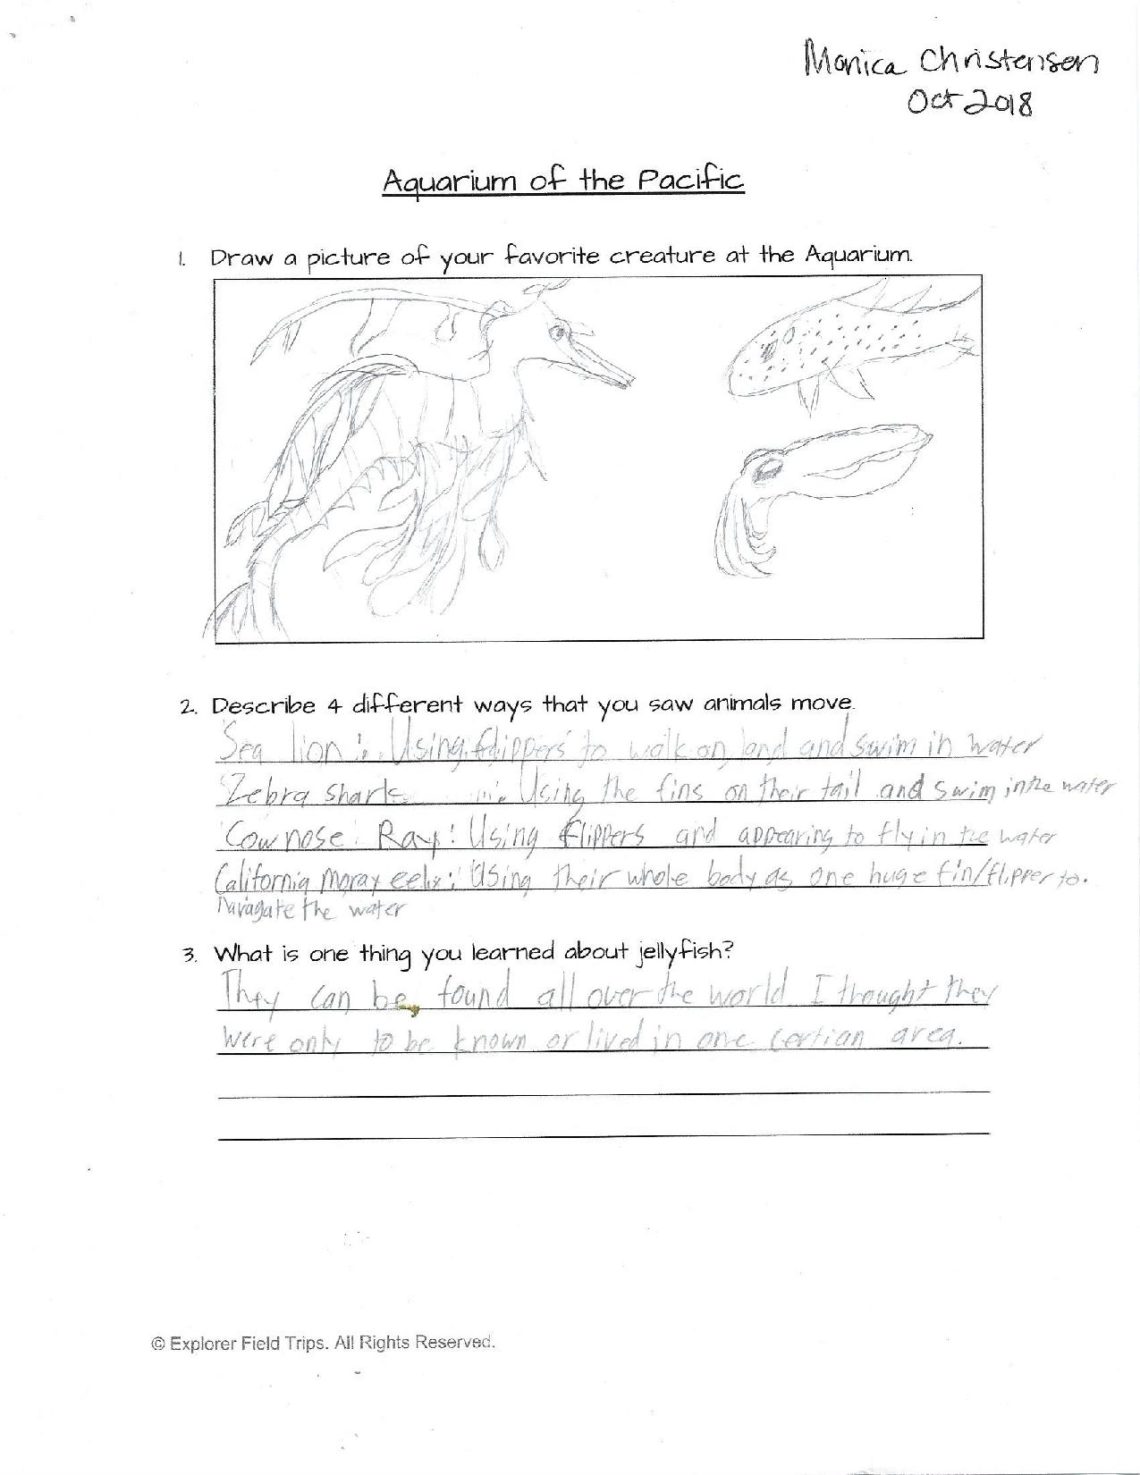 Monica Christensen
Oct 2018
Aquarium of the Pacific
1. Draw a picture of your favorite creature at the Aquarium.
2. Describe 4 different ways that you saw animals move.
Sea lion: Using flippers to walk on land and swim in water
Zebra shark: Using the fins on their tail and swim in the water
Cownose Ray: Using flippers and appearing to fly in the water
California moray eels: Using their whole body as one huge fin/flipper to.
navagate the water
3. What is one thing you learned about jellyfish?
They can be found all over the world I thought they
were only to be known or lived in one certian area.
© Explorer Field Trips. All Rights Reserved.